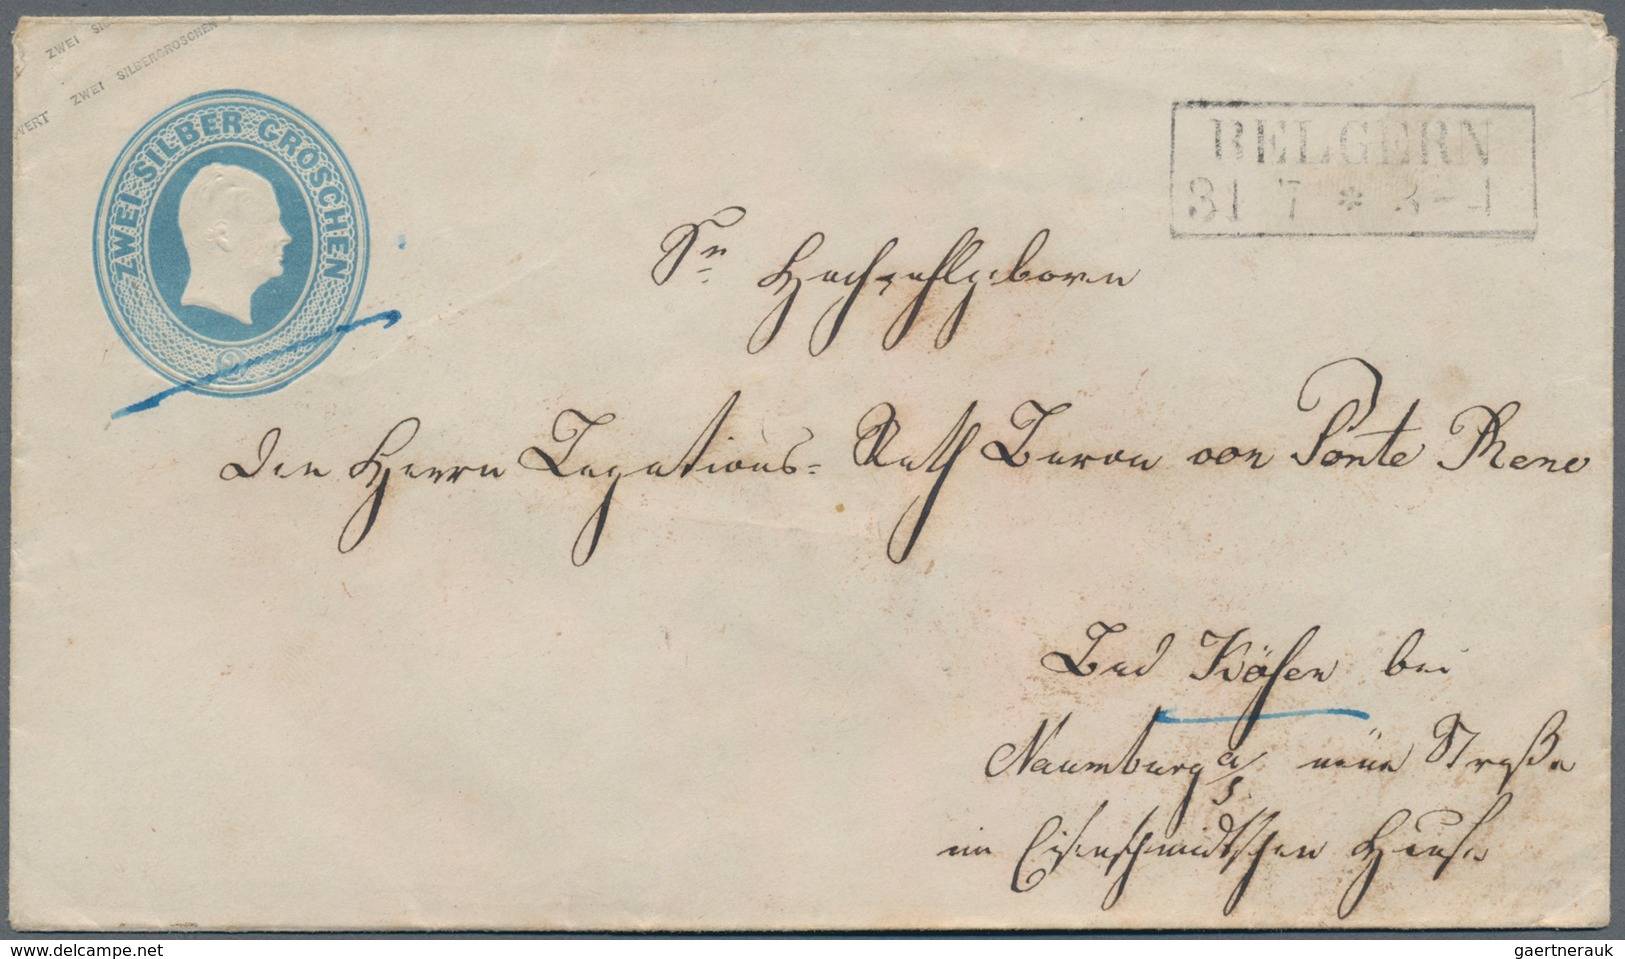 ZWEI
ZWEI SILBERGROSCHEN
VERT
ZWEI SILBER GROSCHEN
2
BELGERN
31 7 * 3-4
Sr Hochwohlgeboren
Den Herrn Legations-Rath Baron von Ponte
Bad Kösen bei
Naumburg a/S neue Straße
im Eisenschmidtschen Hause
www.delcampe.net
gaertnerauk